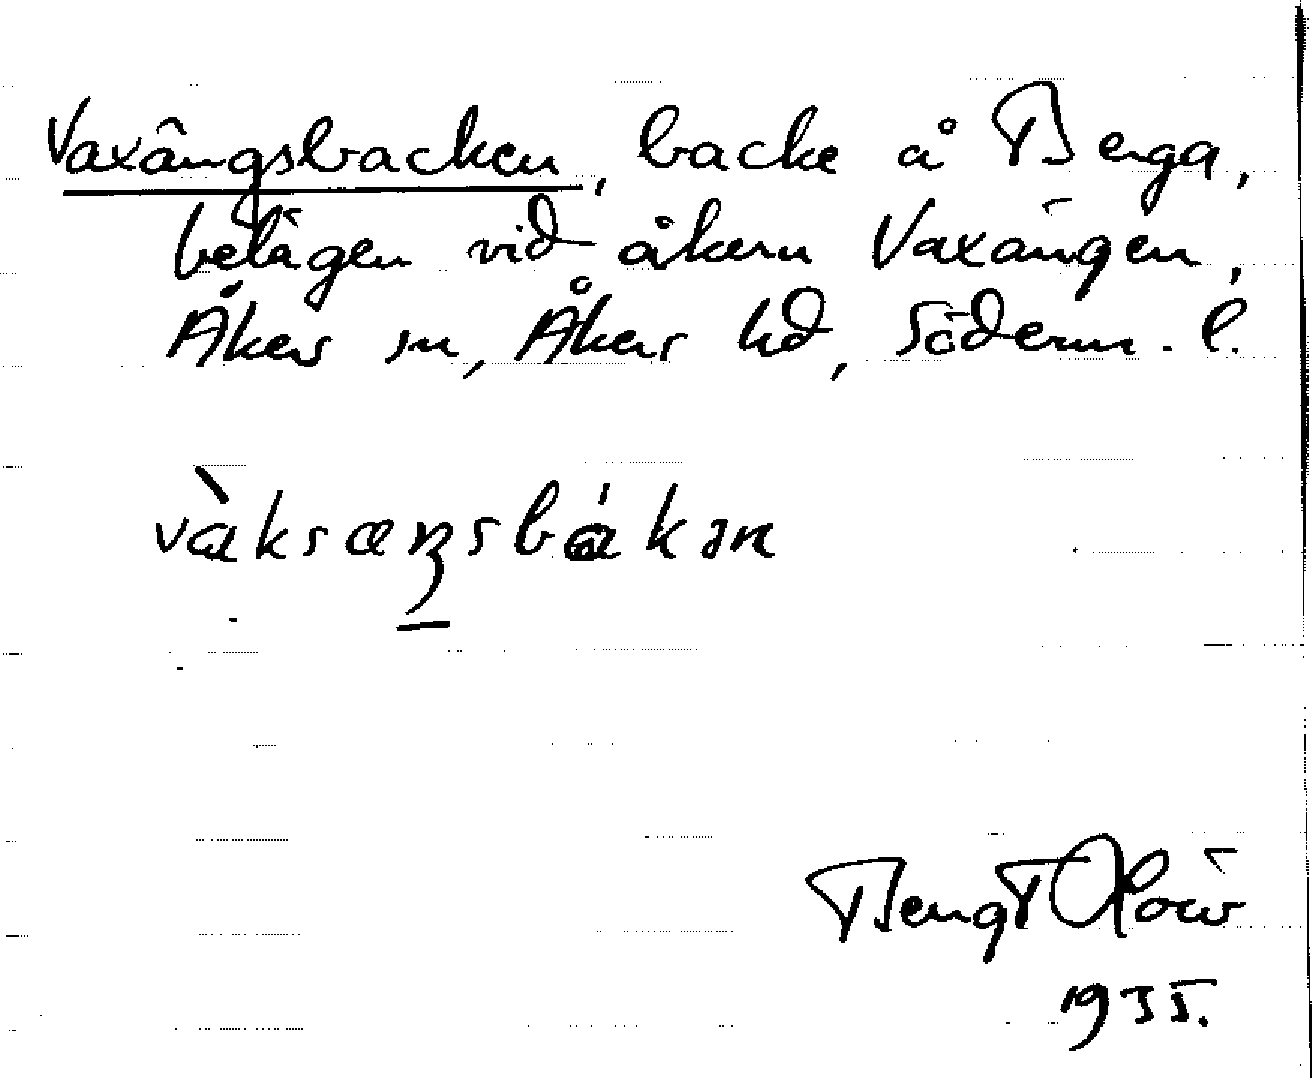 Vaxängsbacken, backe å Berga,
belägen vid åkern Vaxängen,
Åkers sn, Åkers hd, Söderm. l.
vàksæŋsbákən
Bengt
1935.